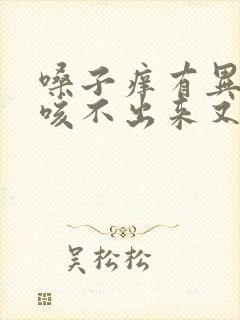 嗓子痒有异
咳不出来又
吴松松